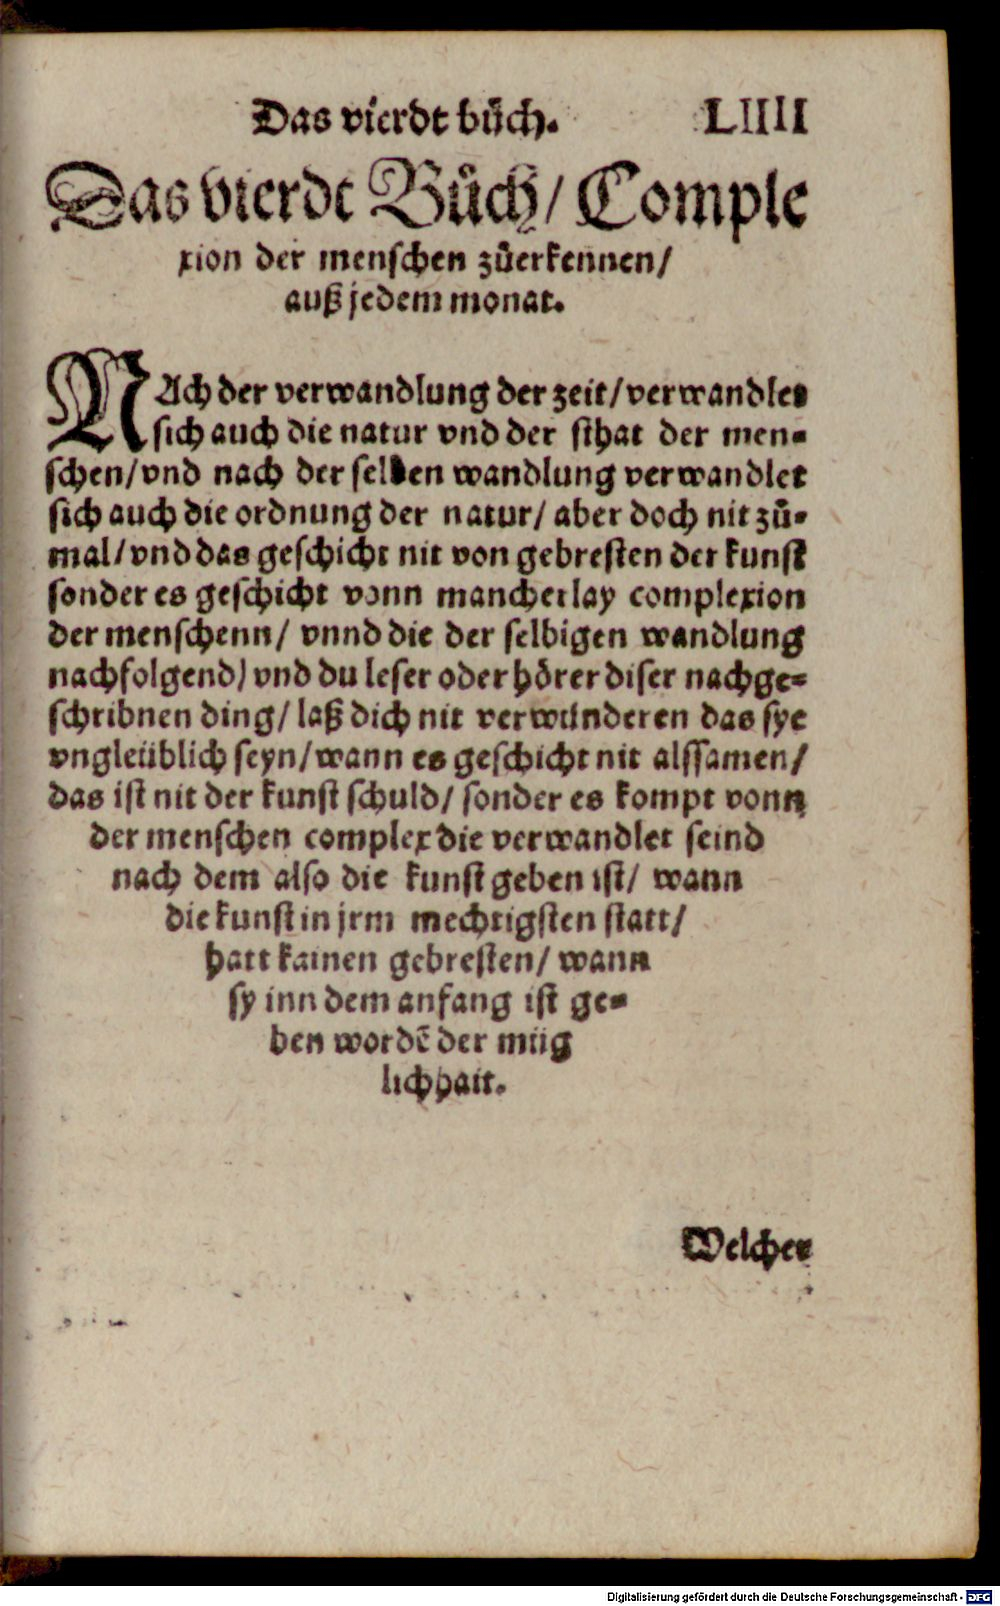 Das vierdt bůch. LIIII
Das vierdt Bůch/ Comple
xion der menschen zůerkennen/
auß jedem monat.
NAch der verwandlung der zeit/ verwandlet
sich auch die natur vnd der sthat der men-
schen/ vnd nach der selben wandlung verwandlet
sich auch die ordnung der natur/ aber doch nit zů-
mal/ vnd das geschicht nit von gebresten der kunst
sonder es geschicht vonn mancherlay complexion
der menschenn/ vnnd die der selbigen wandlung
nachfolgend/ vnd du leser oder hörer diser nachge-
schribnen ding/ laß dich nit verwunderen das sye
vngleüblich seyn/ wann es geschicht nit alssamen/
das ist nit der kunst schuld/ sonder es kompt vonn
der menschen complex die verwandlet seind
nach dem also die kunst geben ist/ wann
die kunst in jrm mechtigsten statt/
hatt kainen gebresten/ wann
sy inn dem anfang ist ge-
ben wordē der müg
lichhait.
Welcher
Digitalisierung gefördert durch die Deutsche Forschungsgemeinschaft - DFG